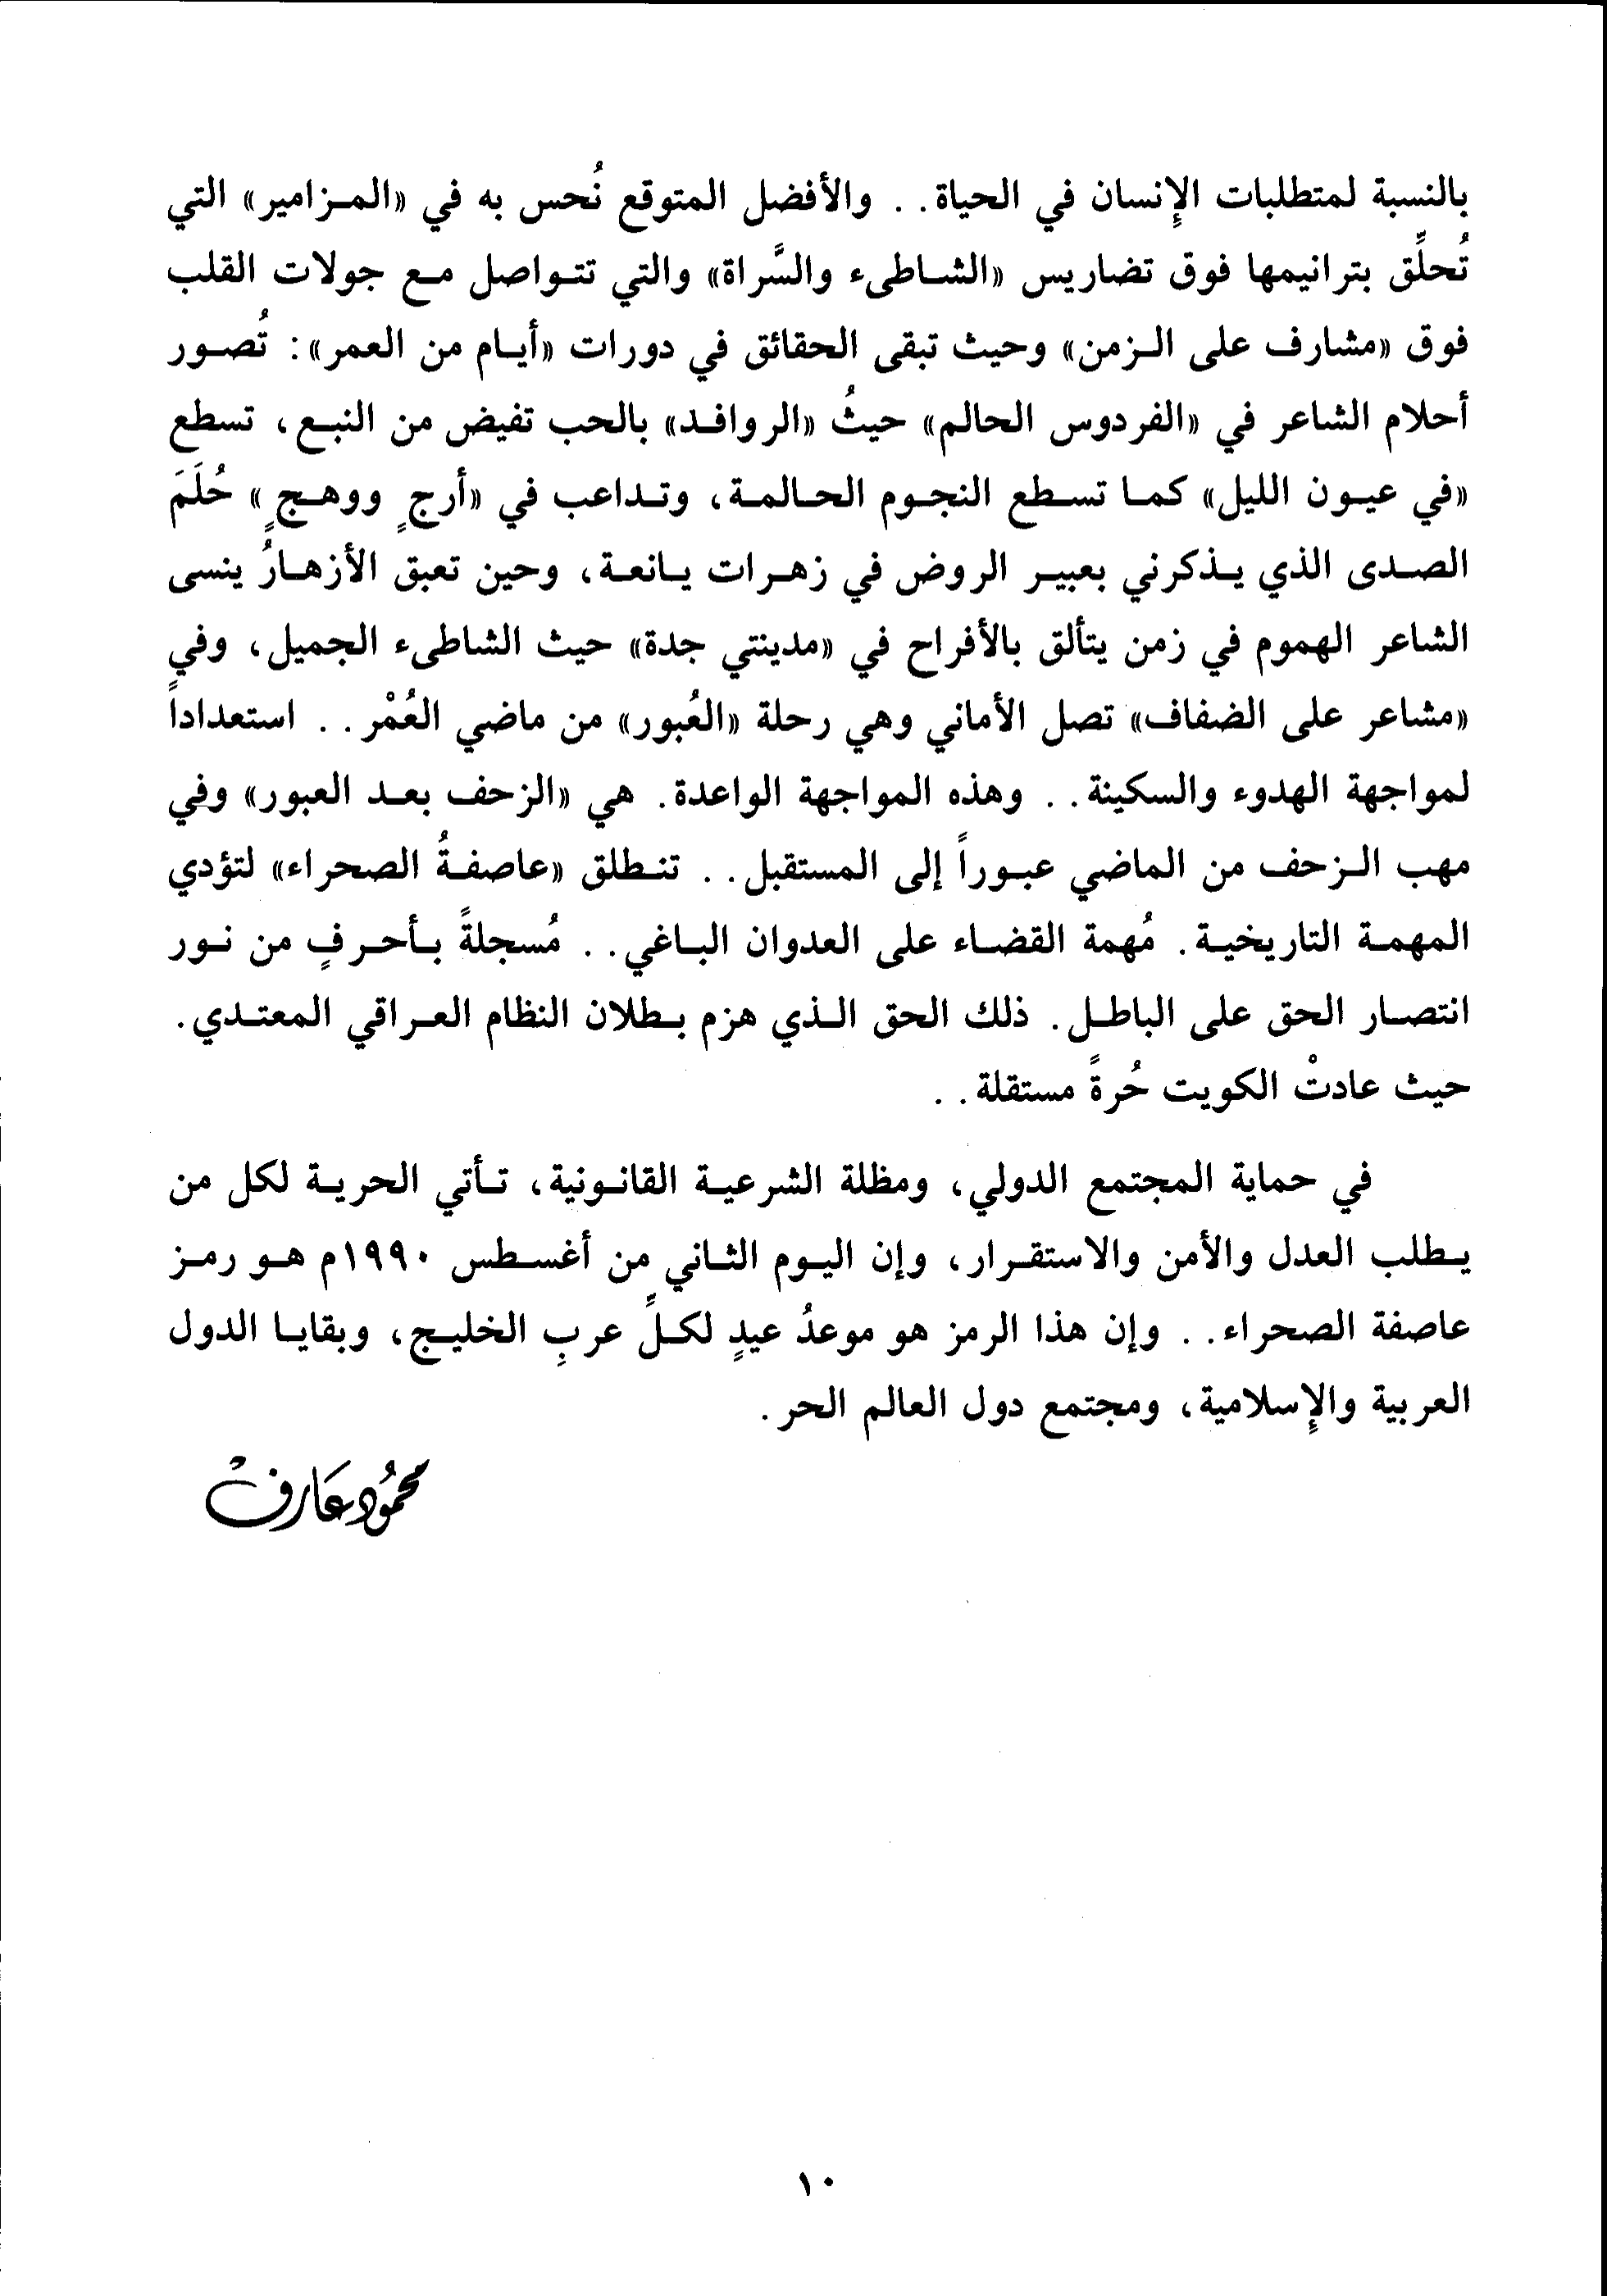 بالنسبة لمتطلبات الإنسان في الحياة. . والأفضل المتوقع نُحس به في «المزامير» التي
تُحلِّق بترانيمها فوق تضاريس «الشاطىء والسَّراة» والتي تتواصل مع جولات القلب
فوق «مشارف على الزمن» وحيث تبقى الحقائق في دورات «أيام من العمر»: تُصور
أحلام الشاعر في «الفردوس الحالم» حيثُ «الروافد» بالحب تفيض من النبع، تسطع
«في عيون الليل» كما تسطع النجوم الحالمة، وتداعب في «أرجٍ ووهجٍ» حُلَمَ
الصدى الذي يذكرني بعبير الروض في زهرات يانعة، وحين تعبق الأزهارُ ينسى
الشاعر الهموم في زمن يتألق بالأفراح في «مدينتي جدة» حيث الشاطىء الجميل، وفي
«مشاعر على الضفاف» تصل الأماني وهي رحلة «العُبور» من ماضي العُمْر. . استعداداً
لمواجهة الهدوء والسكينة. . وهذه المواجهة الواعدة. هي «الزحف بعد العبور» وفي
مهب الزحف من الماضي عبوراً إلى المستقبل. . تنطلق «عاصفةُ الصحراء» لتؤدي
المهمة التاريخية. مُهمة القضاء على العدوان الباغي. . مُسجلةً بأحرفٍ من نور
انتصار الحق على الباطل. ذلك الحق الذي هزم بطلان النظام العراقي المعتدي.
حيث عادتْ الكويت حُرةً مستقلة. .
في حماية المجتمع الدولي، ومظلة الشرعية القانونية، تأتي الحرية لكل من
يطلب العدل والأمن والاستقرار، وإن اليوم الثاني من أغسطس ١٩٩٠م هو رمز
عاصفة الصحراء. . وإن هذا الرمز هو موعدُ عيدٍ لكلِّ عربِ الخليج، وبقايا الدول
العربية والإسلامية، ومجتمع دول العالم الحر.
محمُود عَارف
١٠